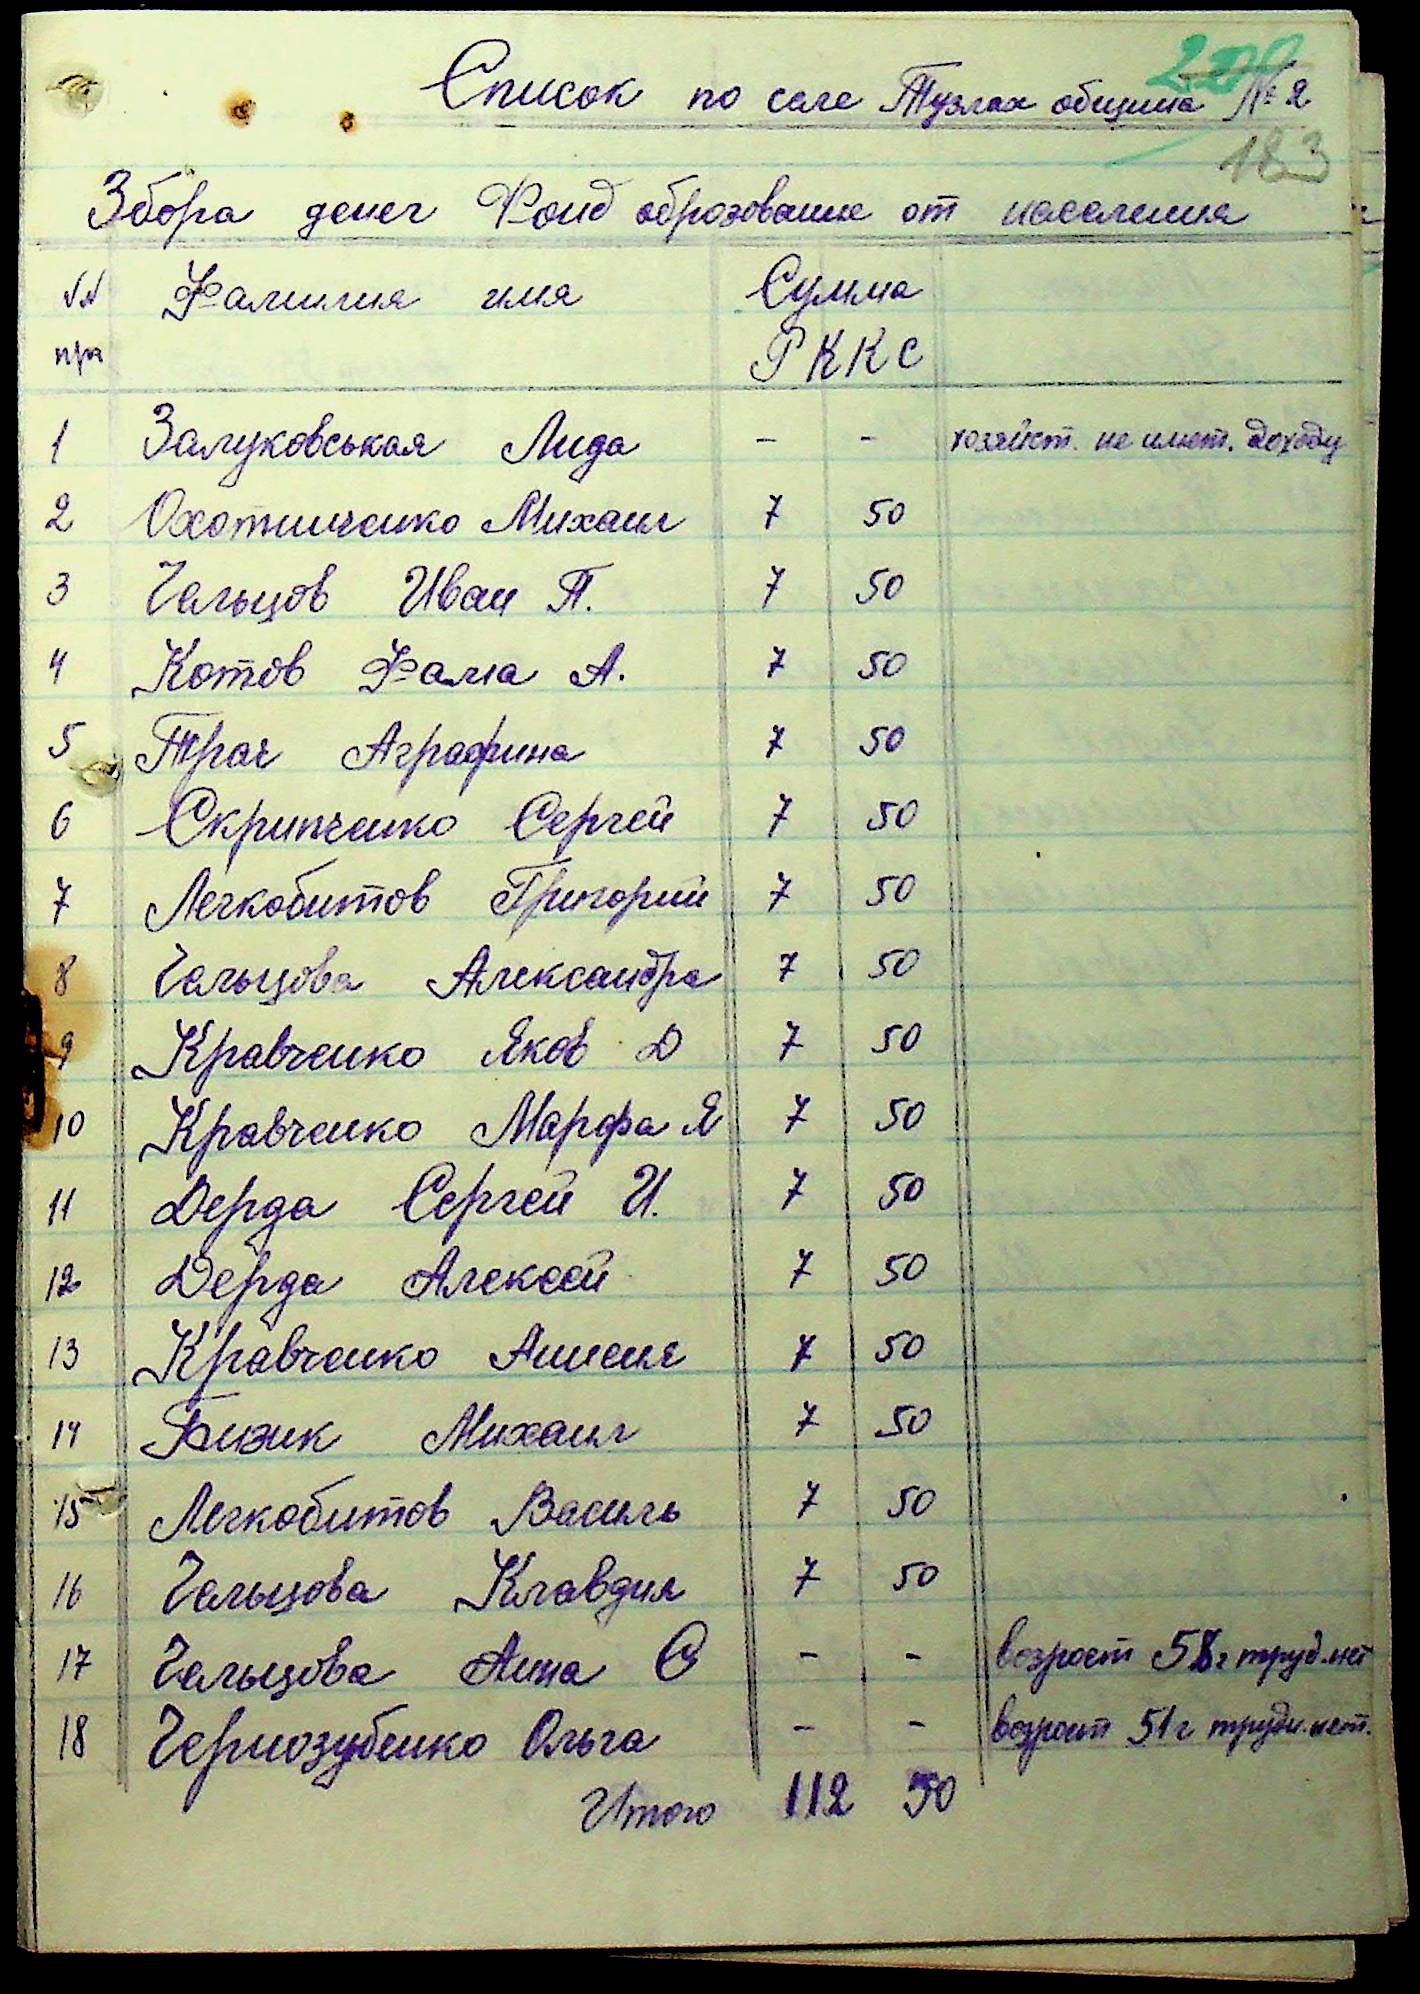 Список по селе Тузлах община № 2
183
Збора денег Фонд оброзование от населения
№№ Фамилия имя Сумма
п/п РККС
1 Залуковськая Лида - - хозяйст. не имет. доходу
2 Охотниченко Михаил 7 50
3 Чальцов Иван П. 7 50
4 Котов Фама А. 7 50
5 Трач Аграфина 7 50
6 Скрипченко Сергей 7 50
7 Легкобитов Григорий 7 50
8 Чальцова Александра 7 50
9 Кравченко Яков Д 7 50
10 Кравченко Марфа Я 7 50
11 Дерда Сергей И. 7 50
12 Дерда Алексей 7 50
13 Кравченко Анисия 7 50
14 Бизик Михаил 7 50
15 Легкобитов Василь 7 50
16 Чальцова Клавдия 7 50
17 Чальцова Анна С - - возрост 58 г труд. нет
18 Чернозубенко Ольга - - возрост 51 г трудн. нет.
Итого 112 50